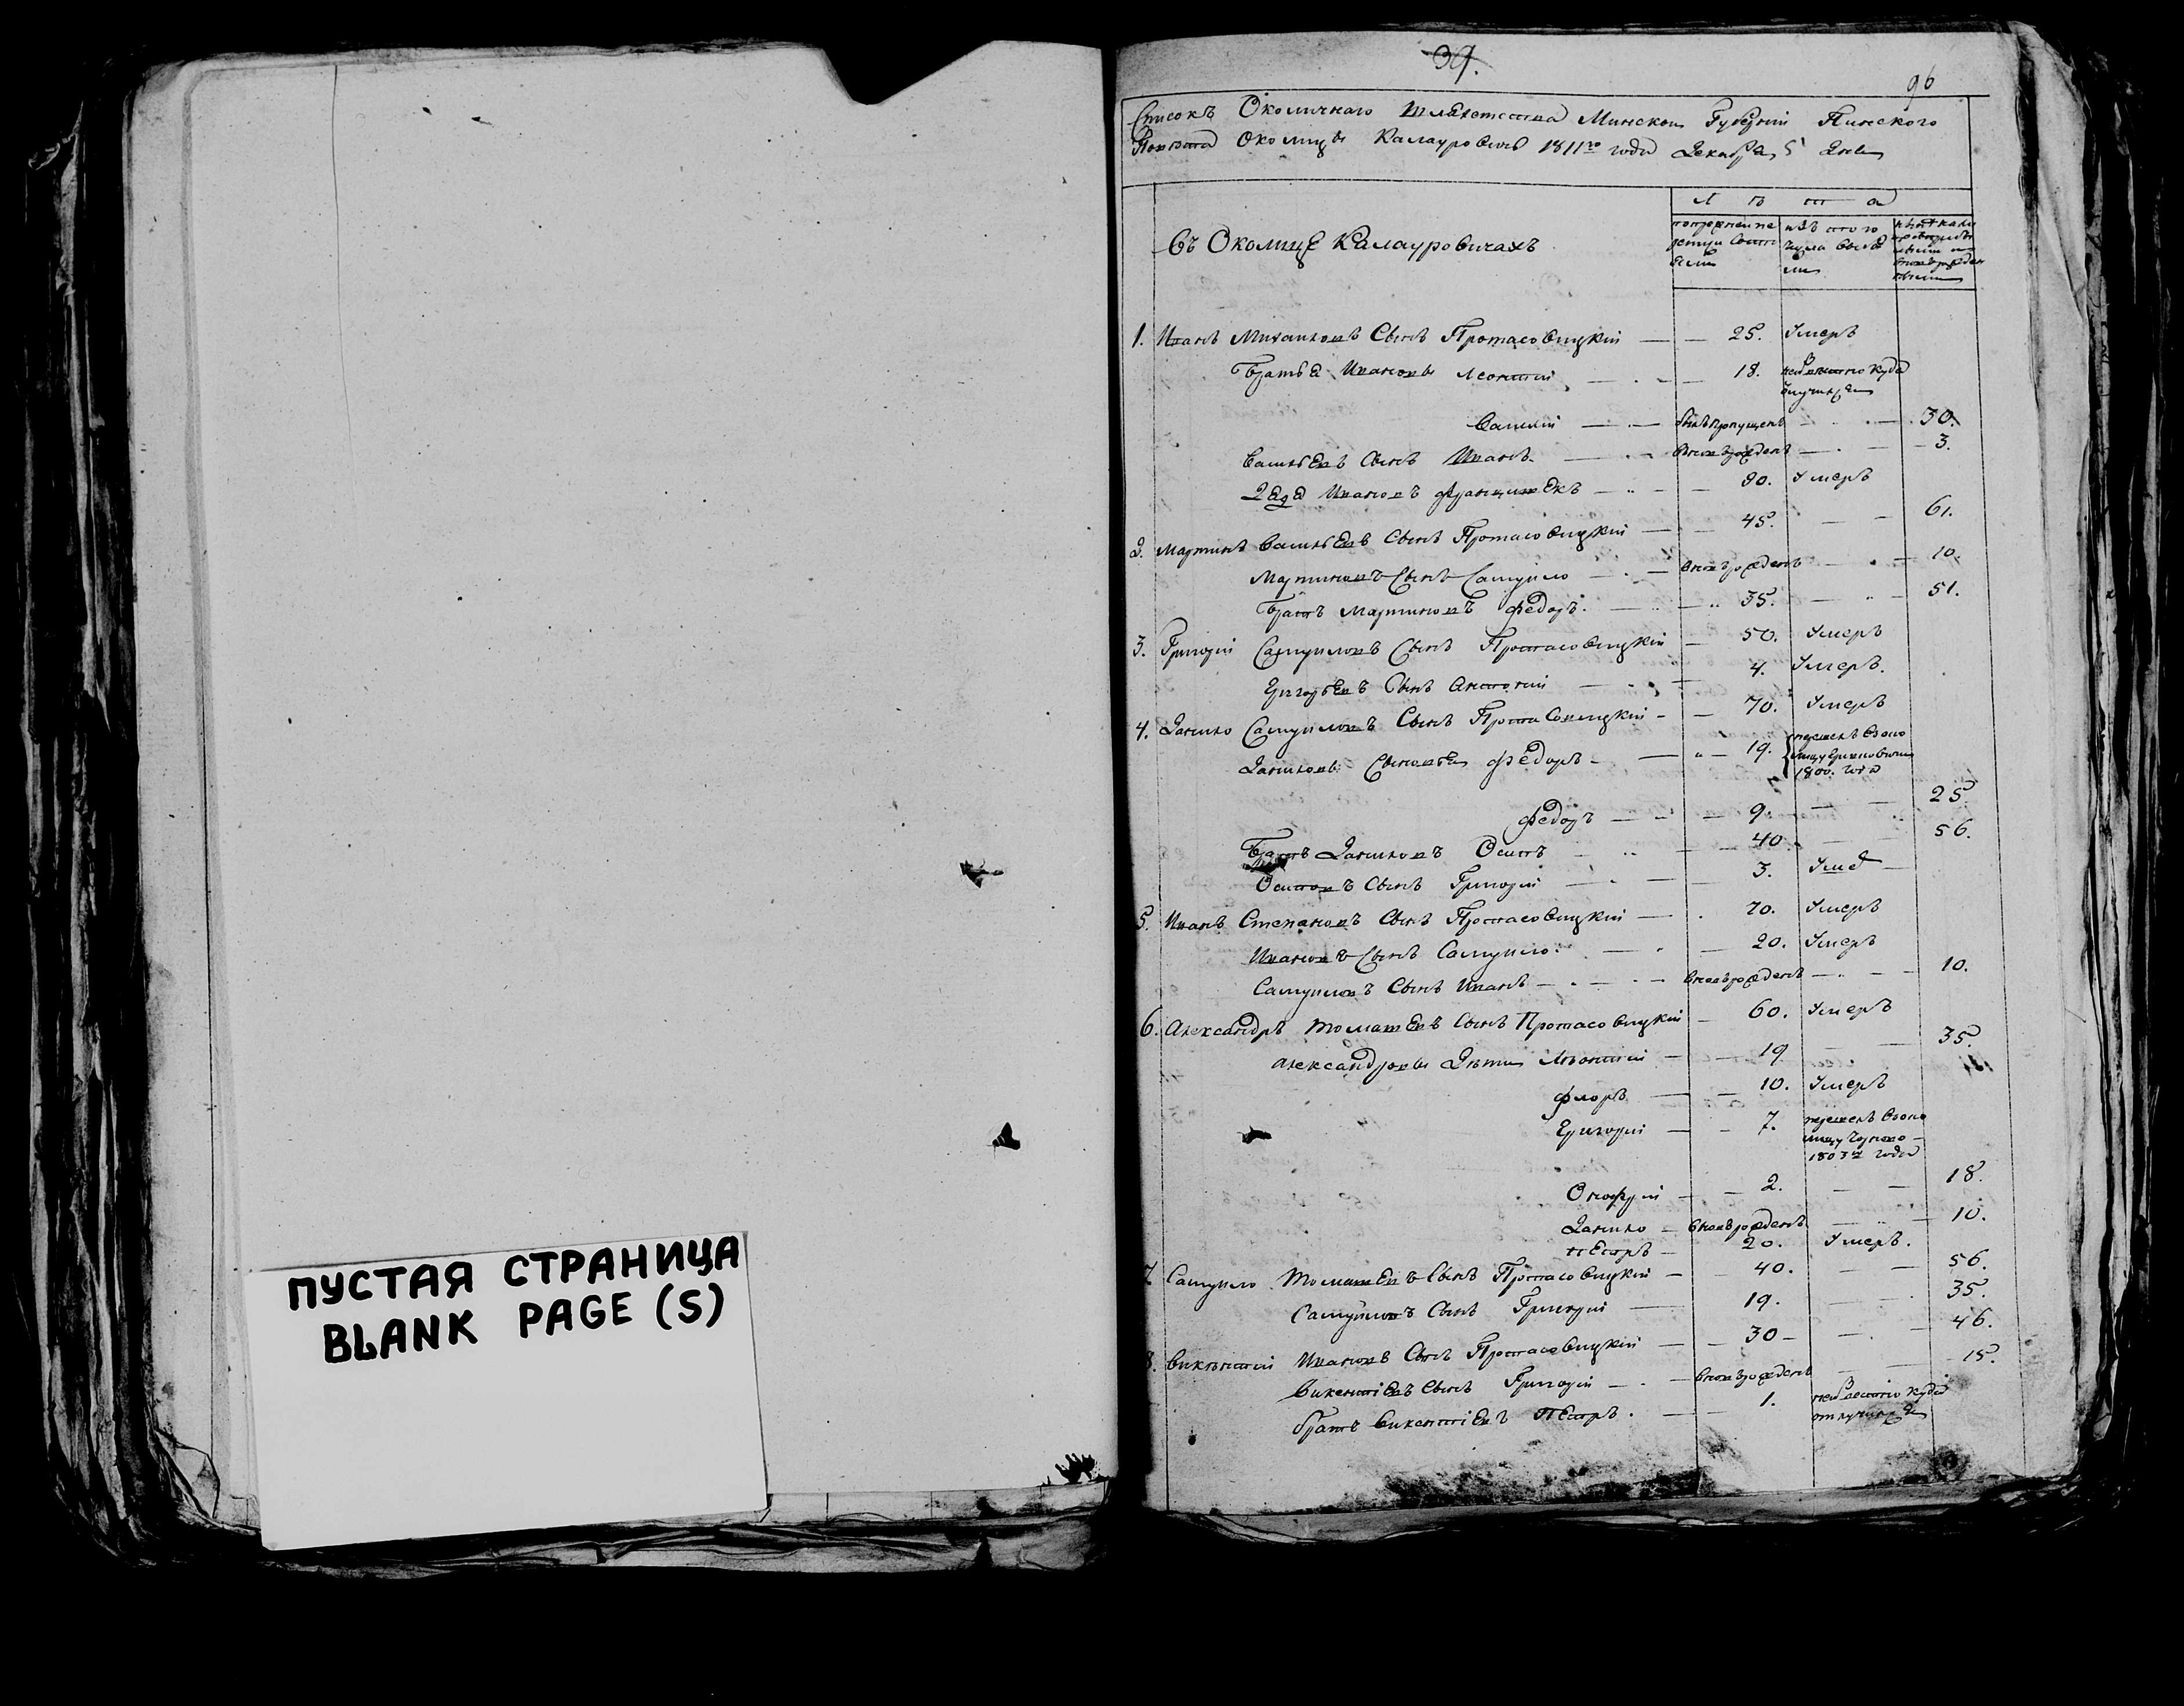 ПУСТАЯ СТРАНИЦА
BLANK PAGE (S)
39.
96
Списокъ Околичнаго Шляхетства Минской Губерніи Пинского
Повѣта Околицы Калауровичь 1811го года Декабря 5 дня
Лѣта
Въ Околице Калауровичахъ
по прежней ре
визіи состо
яли
изъ того
числа выбы
ли
нынѣ на ли
1. Иванъ Михаиловъ Сынъ Протасовицкій — 25. Умеръ
Братья Ивановы Леонтій — 18. неизвѣстно куда
отлучился
Василій — былъ пропущенъ — 30.
Васильевъ Сынъ Иванъ — вновь рожденъ — 3.
Дядя Ивановъ Францишекъ — 90. Умеръ
2. Мартинъ Васильевъ Сынъ Протасовицкій — 45. — 61.
Мартиновъ Сынъ Самуило — вновь рожденъ — 10.
Братъ Мартиновъ Федоръ — 35. — 51.
3. Григорій Самуиловъ Сынъ Протасовицкій — 50. Умеръ
Григорьевъ Сынъ Антоній — 4. Умеръ.
4. Данило Самуиловъ Сынъ Протасовицкій — 70. Умеръ
Даниловы Сыновья Федоръ — 19. перешелъ въ око
лицу
1800. года
Федоръ — 9. — 25.
Братъ Даниловъ Осипъ — 40. — 56.
Осиповъ Сынъ Григорій — 3. Уме
5. Иванъ Степановъ Сынъ Протасовицкій — 70. Умеръ
Ивановъ Сынъ Самуило — 20. Умеръ
Самуиловъ Сынъ Иванъ — вновь рожденъ — 10.
6. Александръ Томашевъ Сынъ Протасовицкій — 60. Умеръ
Александровы Дѣти Лѣонтій — 19 — 35.
Флоръ — 10. Умеръ
Григорій — 7. перешелъ въ око
лицу
1803го года
Онофрій — 2. — 18.
Данило — вновь рожденъ — 10.
Петръ — 20. Умеръ.
7. Самуило Томашевъ Сынъ Протасовицкій — 40. — 56.
Самуиловъ Сынъ Григорій — 19. — 35.
8. Викентій Ивановъ Сынъ Протасовицкій — 30 — 46.
Викентіевъ Сынъ Григорій — вновь рожденъ — 15.
братъ Викентіевъ Петръ. — 1. неизвестно куда
отлучился